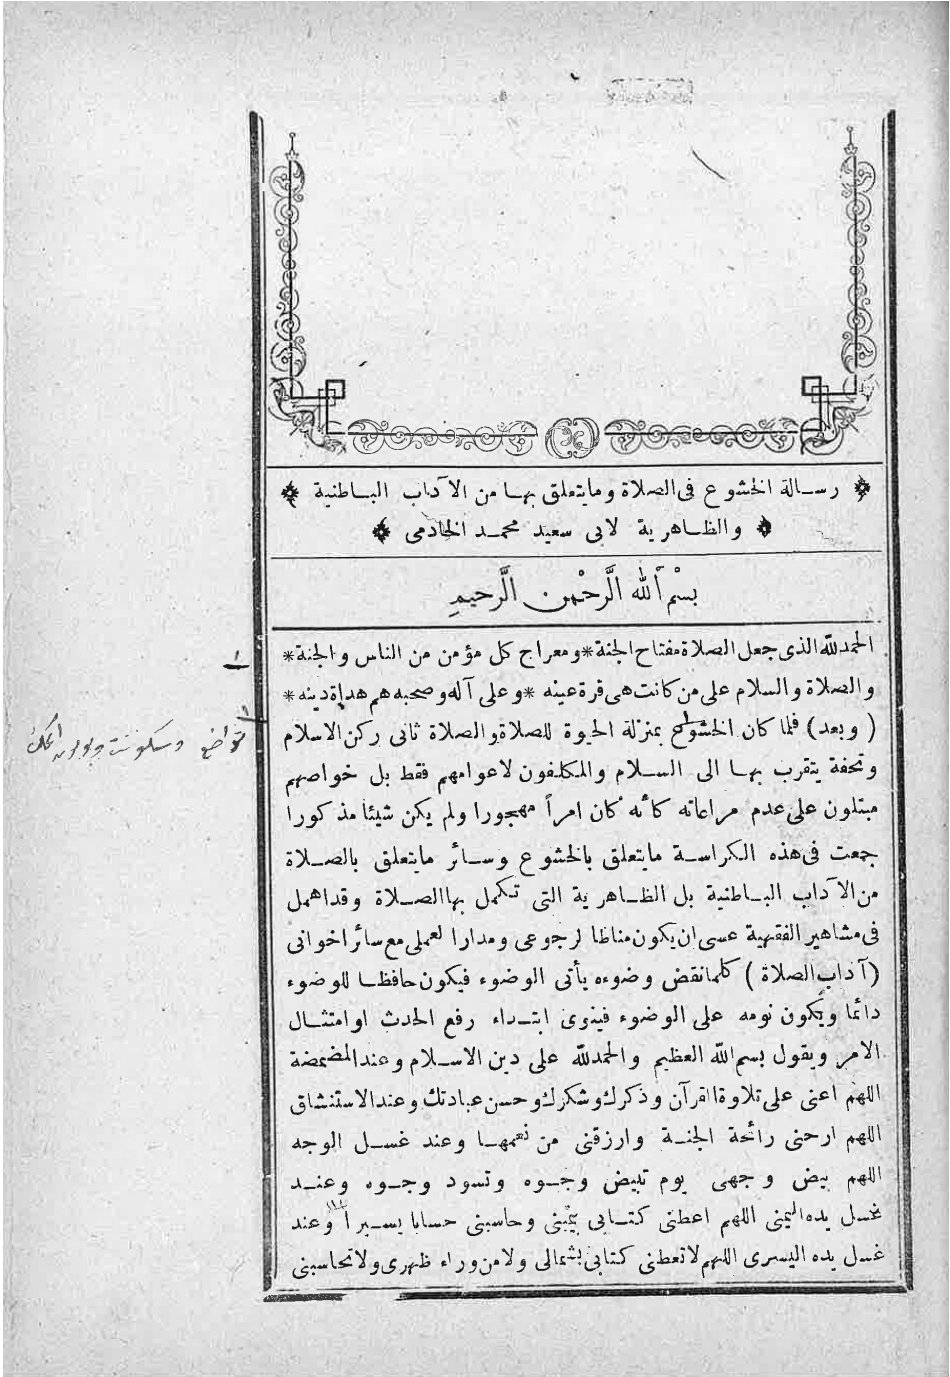 رسالة الخشوع فى الصلاة وما يتعلق بها من الآداب الباطنية
والظاهرية لابى سعيد محمد الخادمى
بِسْمِ اللّٰهِ الرَّحْمٰنِ الرَّحيمِ
الحمد لله الذى جعل الصلاة مفتاح الجنة * ومعراج كل مؤمن من الناس والجنة *
والصلاة والسلام على من كانت هى قرة عينه * وعلى آله وصحبه هم هداة دينه *
( وبعد ) فلما كان الخشوع بمنزلة الحيوة للصلاة والصلاة ثانى ركن الاسلام
وتحفة يتقرب بها الى السلام والمكلفون لاعوامهم فقط بل خواصهم
مبتلون على عدم مراعاته كأنه كان امراً مهجورا ولم يكن شيئا مذكورا
جمعت فى هذه الكراسة ما يتعلق بالخشوع وسائر ما يتعلق بالصلاة
من الآداب الباطنية بل الظاهرية التى تكمل بها الصلاة وقد اهمل
فى مشاهير الفقهية عسى ان يكون مناطا لرجوعى ومدارا لعملى مع سائر اخوانى
( آداب الصلاة ) كلما نقض وضوءه يأتى الوضوء فيكون حافظا للوضوء
دائما ويكون نومه على الوضوء فينوى ابتداء رفع الحدث او امتثال
الامر ويقول بسم الله العظيم والحمد لله على دين الاسلام وعند المضمضة
اللهم اعنى على تلاوة القرآن وذكرك وشكرك وحسن عبادتك وعند الاستنشاق
اللهم ارحنى رائحة الجنة وارزقنى من نعمها وعند غسل الوجه
اللهم بيض وجهى يوم تبيض وجوه وتسود وجوه وعند
غسل يده اليمنى اللهم اعطنى كتابى بيمينى وحاسبنى حسابا يسيرا وعند
غسل يده اليسرى اللهم لا تعطنى كتابى بشمالى ولا من وراء ظهرى ولا تحاسبنى
١
١ تواضع وسكونت